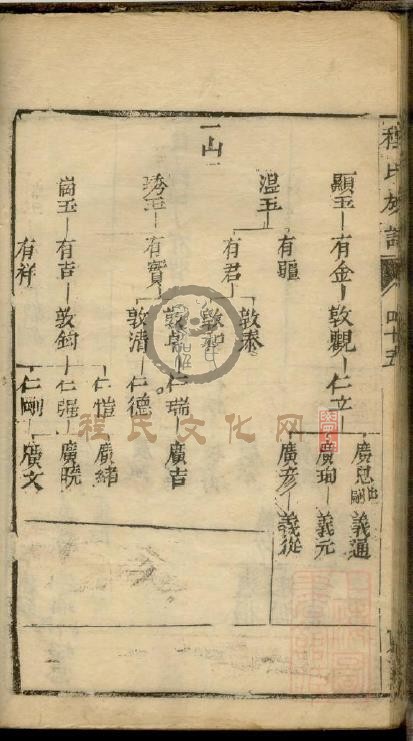 程氏族譜 四十五
顯玉 有金 敦觀 仁立
出剛 義通
廣珣 義元
廣彥 義從
溫玉
敦泰
有君
一山
琇玉 有寶 敦卓 仁瑞 廣吉
敦清 仁德
仁愷 廣緒
崗玉 有吉 敦鈞 仁強 廣曉
有祥 仁剛 廣文
程氏文化网